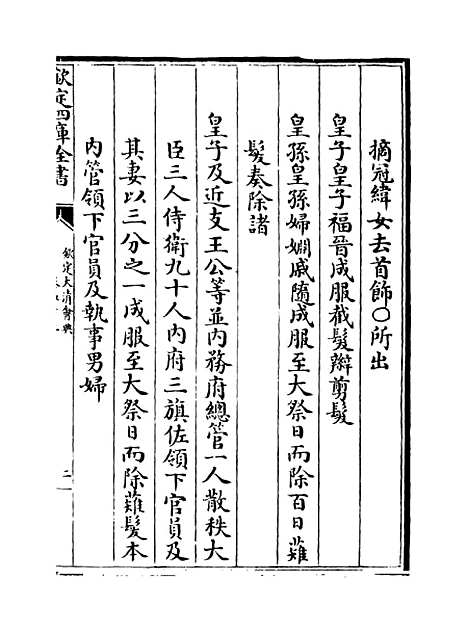 摘冠緯女去首飾○所出
皇子皇子福晉成服截髮辮剪髮
皇孫皇孫婦姻戚隨成服至大祭日而除百日薙
髮奏除諸
皇子及近支王公等並内務府總管一人散秩大
臣三人侍衛九十人内府三旗佐領下官員及
其妻以三分之一成服至大祭日而除薙髮本
内管領下官員及執事男婦
欽定四庫全書
欽定大清會典